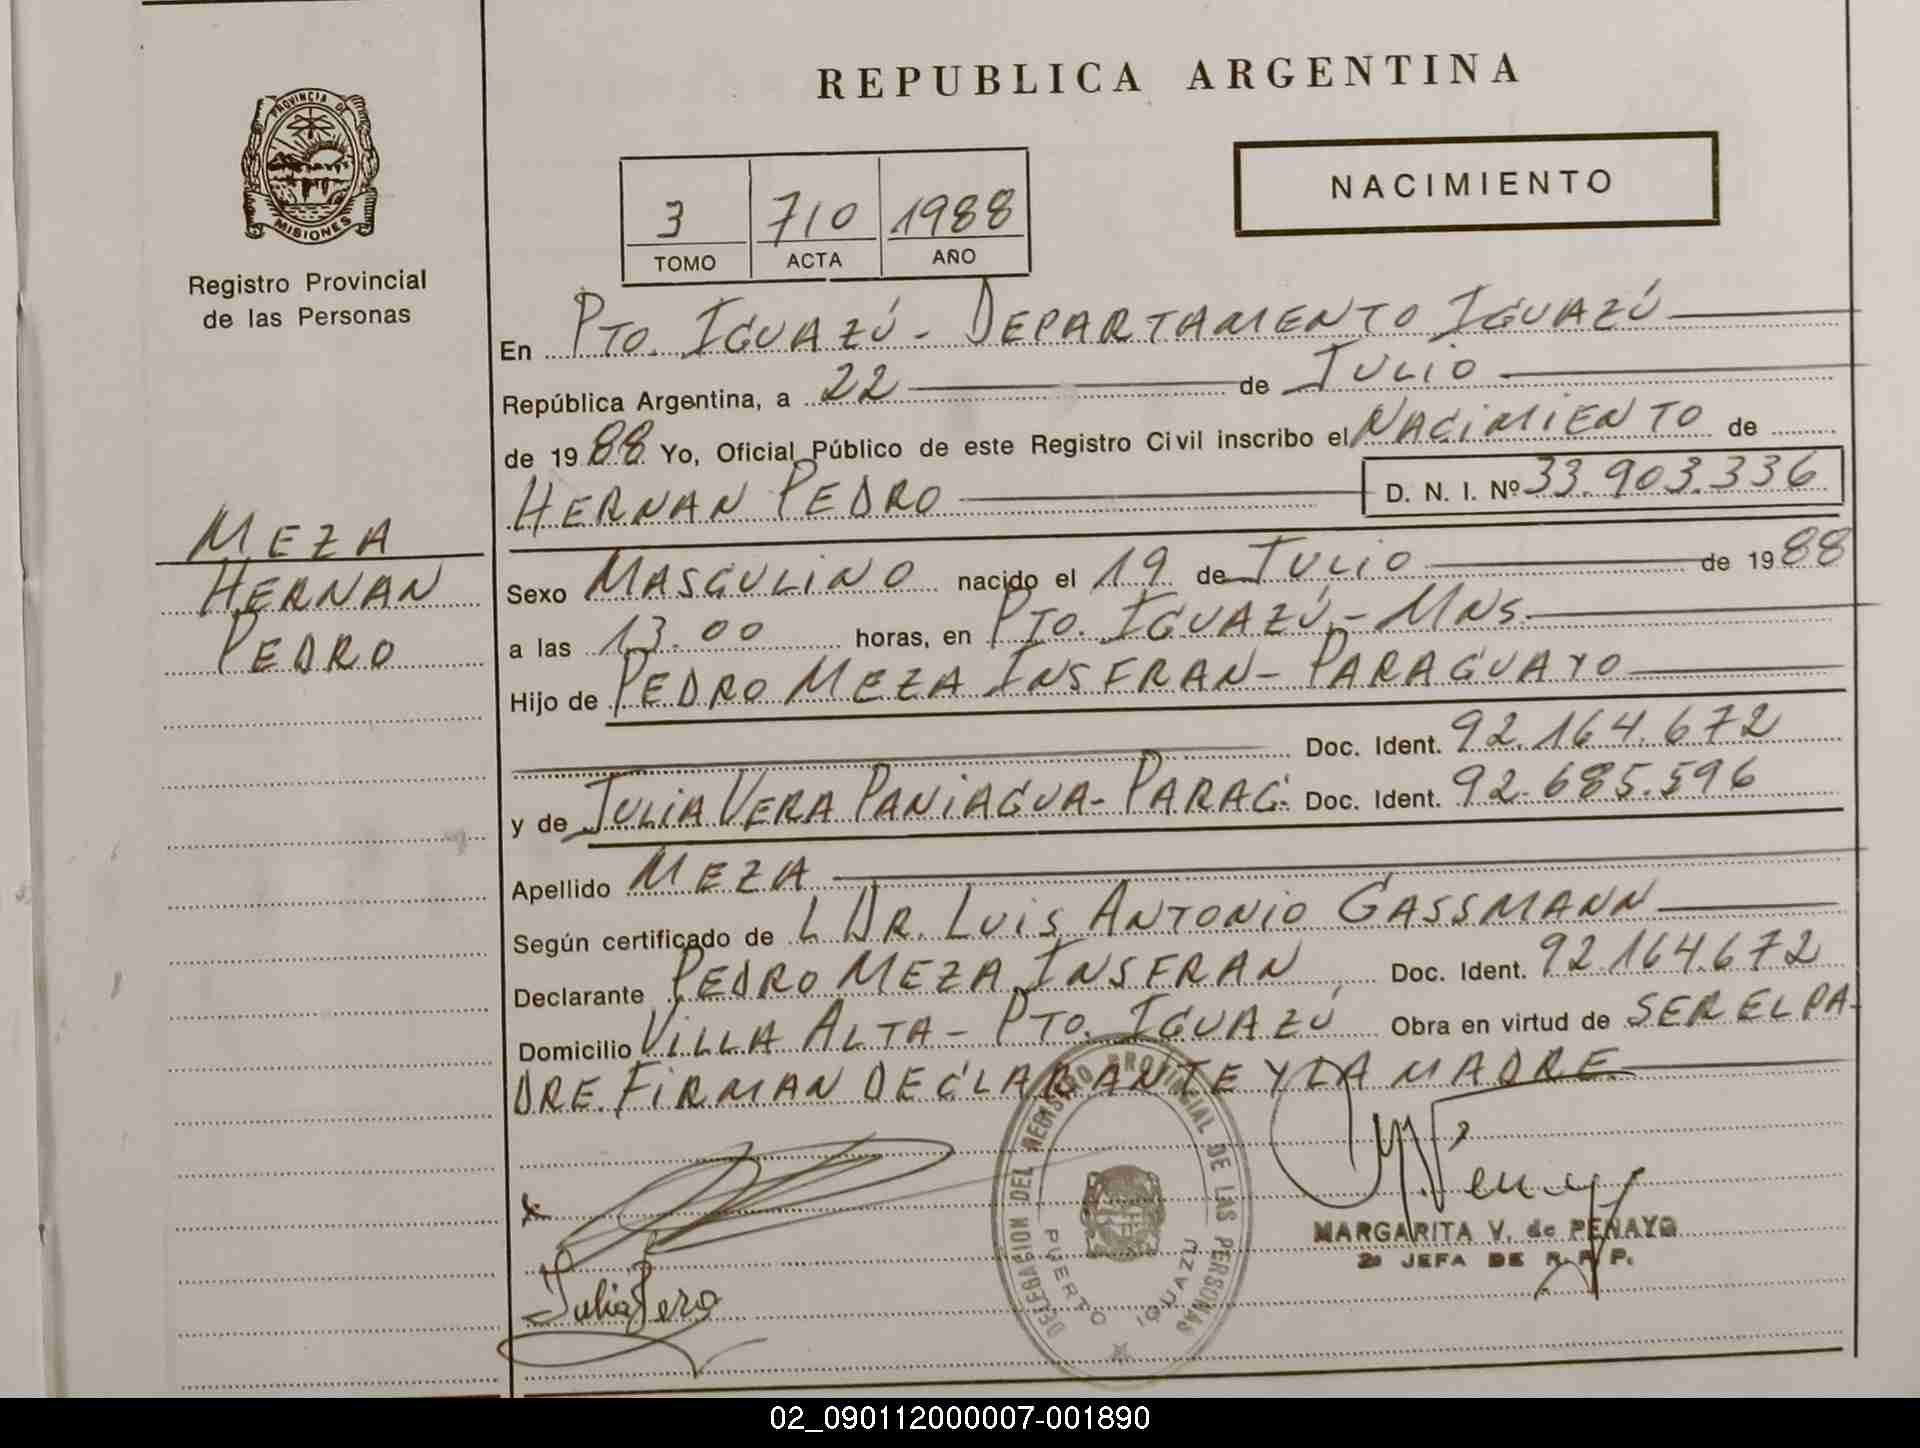 REPUBLICA ARGENTINA
PROVINCIA DE MISIONES
Registro Provincial
de las Personas
NACIMIENTO
3 710 1988
TOMO ACTA AÑO
En PTO. IGUAZÚ - DEPARTAMENTO IGUAZÚ
República Argentina, a 22 de JULIO
de 1988 Yo, Oficial Público de este Registro Civil inscribo el NACIMIENTO de
HERNAN PEDRO D. N. I. Nº 33.903.336
MEZA
HERNAN
PEDRO
Sexo MASCULINO nacido el 19 de JULIO de 1988
a las 13.00 horas, en PTO. IGUAZÚ - MNS.
Hijo de PEDRO MEZA INSFRAN - PARAGUAYO
Doc. Ident. 92.164.672
y de JULIA VERA PANIAGUA - PARAG. Doc. Ident. 92.685.596
Apellido MEZA
Según certificado de L DR. LUIS ANTONIO GASSMANN
Declarante PEDRO MEZA INSFRAN Doc. Ident. 92.164.672
Domicilio VILLA ALTA - PTO. IGUAZÚ Obra en virtud de SER EL PA-
DRE. FIRMAN DECLARANTE Y LA MADRE.
DELEGACION DEL REGISTRO PROVINCIAL DE LAS PERSONAS
PUERTO IGUAZU
x
Julia Vera
MARGARITA V. de PENAYO
2a JEFA DE R. P. P.
02_090112000007-001890